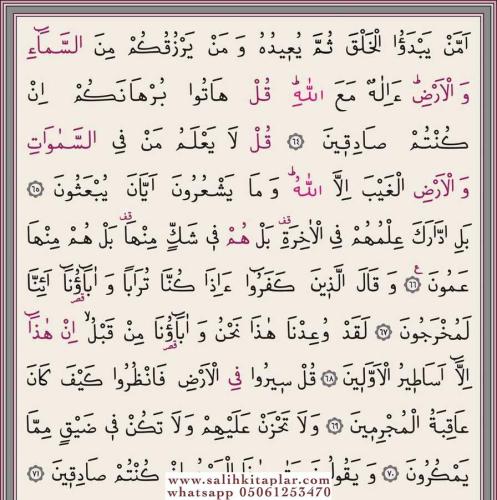 اَمَّنْ يَبْدَؤُا الْخَلْقَ ثُمَّ يُعِيدُهُ وَ مَنْ يَرْزُقُكُمْ مِنَ السَّمَاءِ
وَ الْاَرْضِ ءَاِلٰهٌ مَعَ اللّٰهِ قُلْ هَاتُوا بُرْهَانَكُمْ اِنْ
كُنْتُمْ صَادِقِينَ ٦٤ قُلْ لَا يَعْلَمُ مَنْ فِي السَّمٰوَاتِ
وَ الْاَرْضِ الْغَيْبَ اِلَّا اللّٰهُ وَ مَا يَشْعُرُونَ اَيَّانَ يُبْعَثُونَ ٦٥
بَلِ ادَّارَكَ عِلْمُهُمْ فِي الْاٰخِرَةِ قف بَلْ هُمْ فِي شَكٍّ مِنْهَا قف بَلْ هُمْ مِنْهَا
عَمُونَ ع ٦٦ وَ قَالَ الَّذِينَ كَفَرُوا ءَاِذَا كُنَّا تُرَابًا وَ اٰبَاؤُنَا اَئِنَّا
لَمُخْرَجُونَ ٦٧ لَقَدْ وُعِدْنَا هٰذَا نَحْنُ وَ اٰبَاؤُنَا مِنْ قَبْلُ لا اِنْ هٰذَا
اِلَّا اَسَاطِيرُ الْاَوَّلِينَ ٦٨ قُلْ سِيرُوا فِي الْاَرْضِ فَانْظُرُوا كَيْفَ كَانَ
عَاقِبَةُ الْمُجْرِمِينَ ٦٩ وَلَا تَحْزَنْ عَلَيْهِمْ وَلَا تَكُنْ فِي ضَيْقٍ مِمَّا
يَمْكُرُونَ ٧٠ وَ يَقُولُونَ كُنْتُمْ صَادِقِينَ ٧١
www.salihkitaplar.com
whatsapp 05061253470